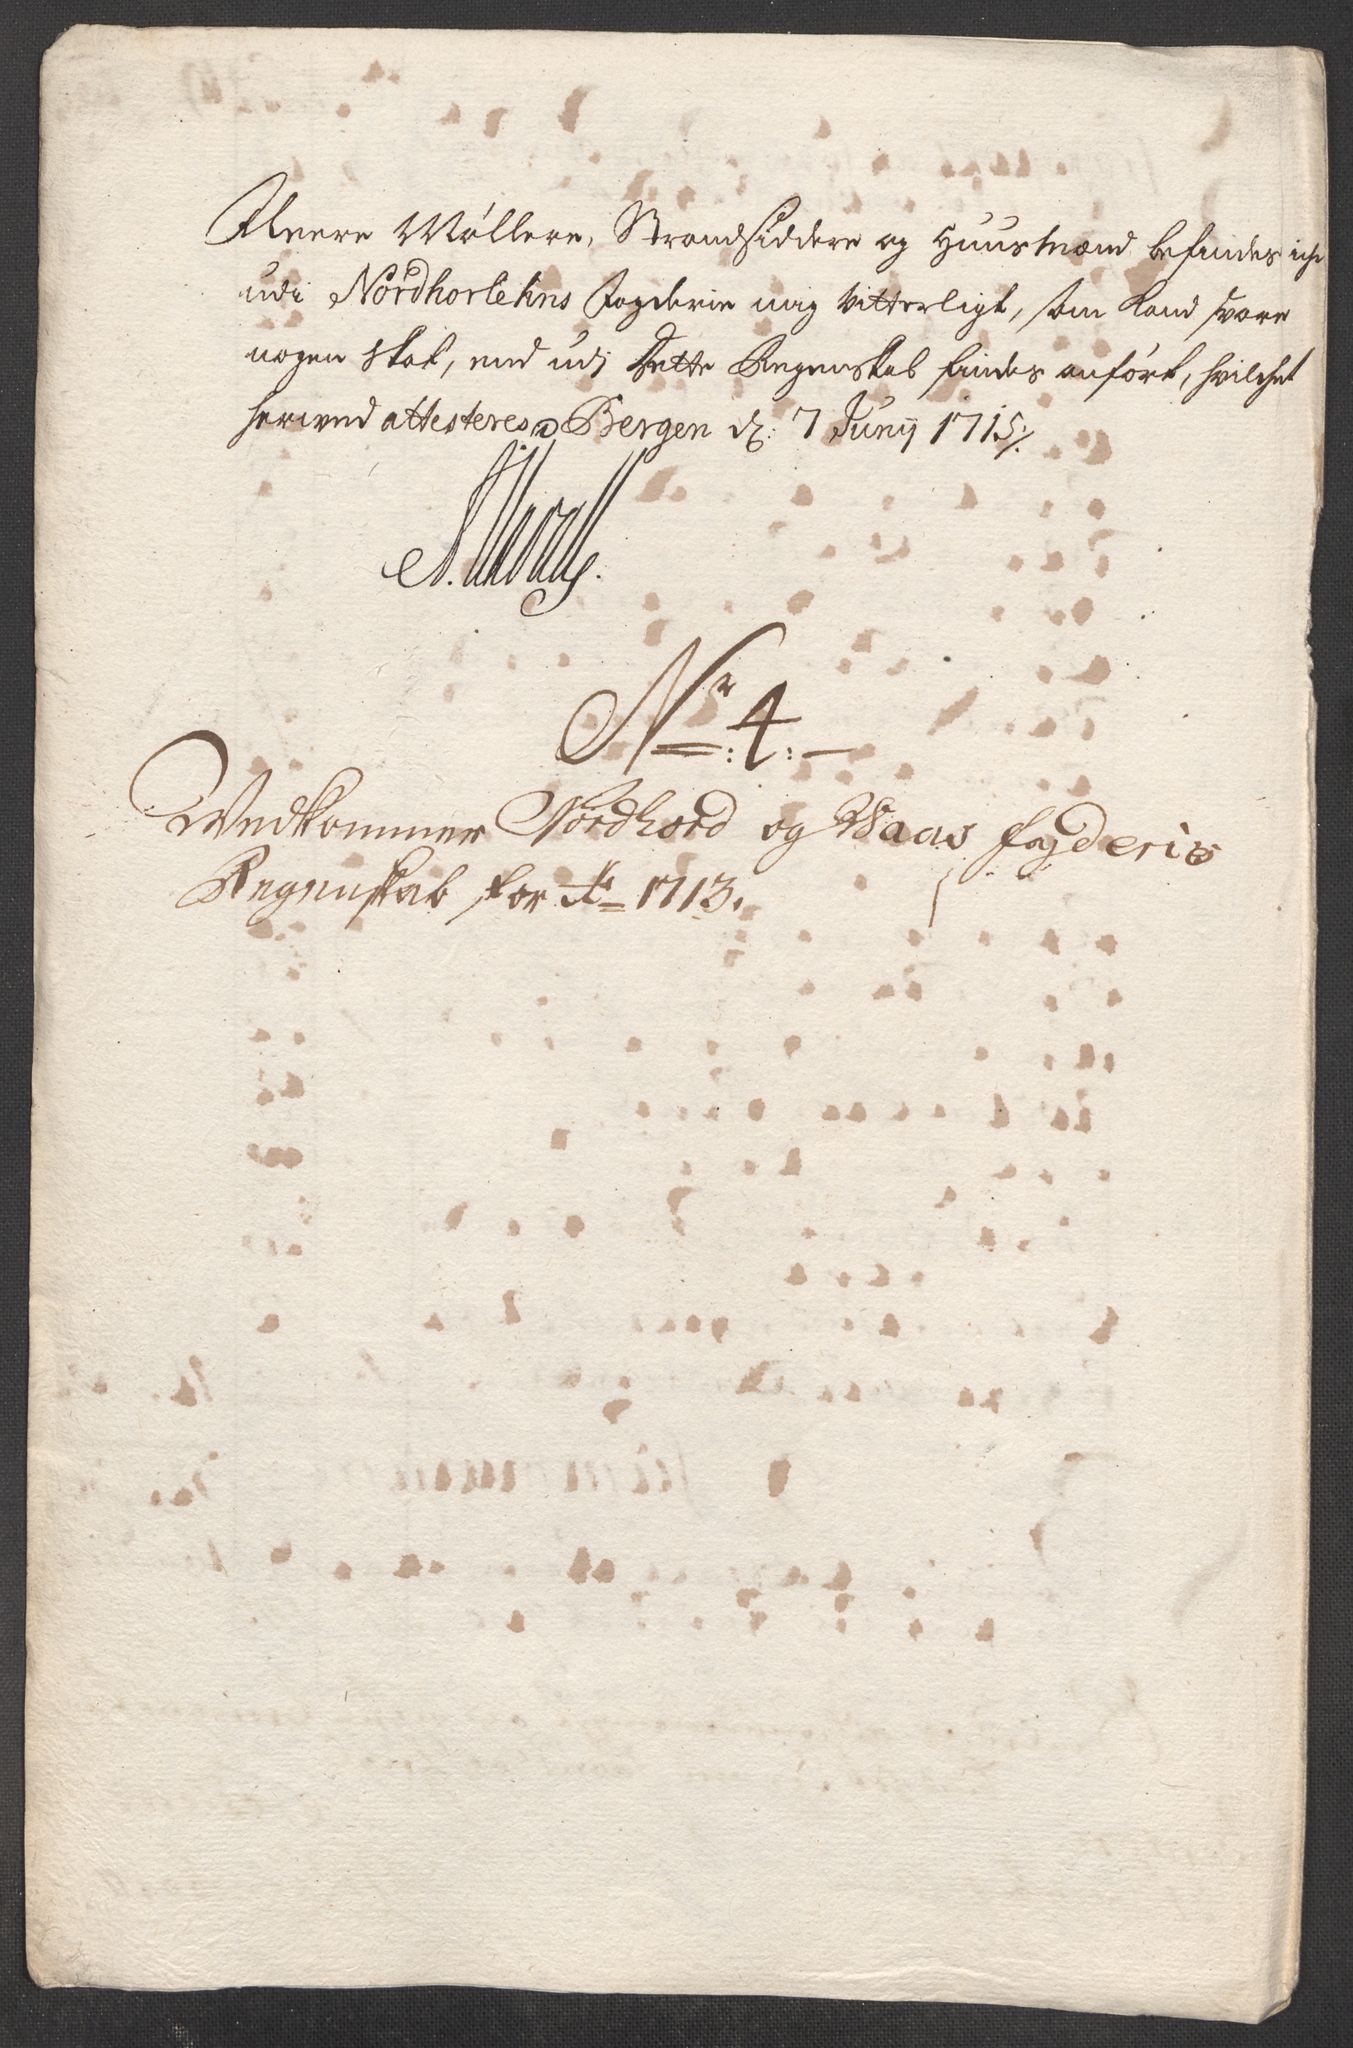 Fleere Møllere, Strandsiddere og Huusmænd befindes iche
udi Nordhorlehns fogderie mig vitterligt, som kand svare
nogen skat, end udj dette Regenskab findes anført, hvilchet
herved attesteres. Bergen d: 7 Junij 1715 ⁒
Nr: 4:
Vedkommer Nordhord og Vaas fogderis
Regenskab for Ao 1713.